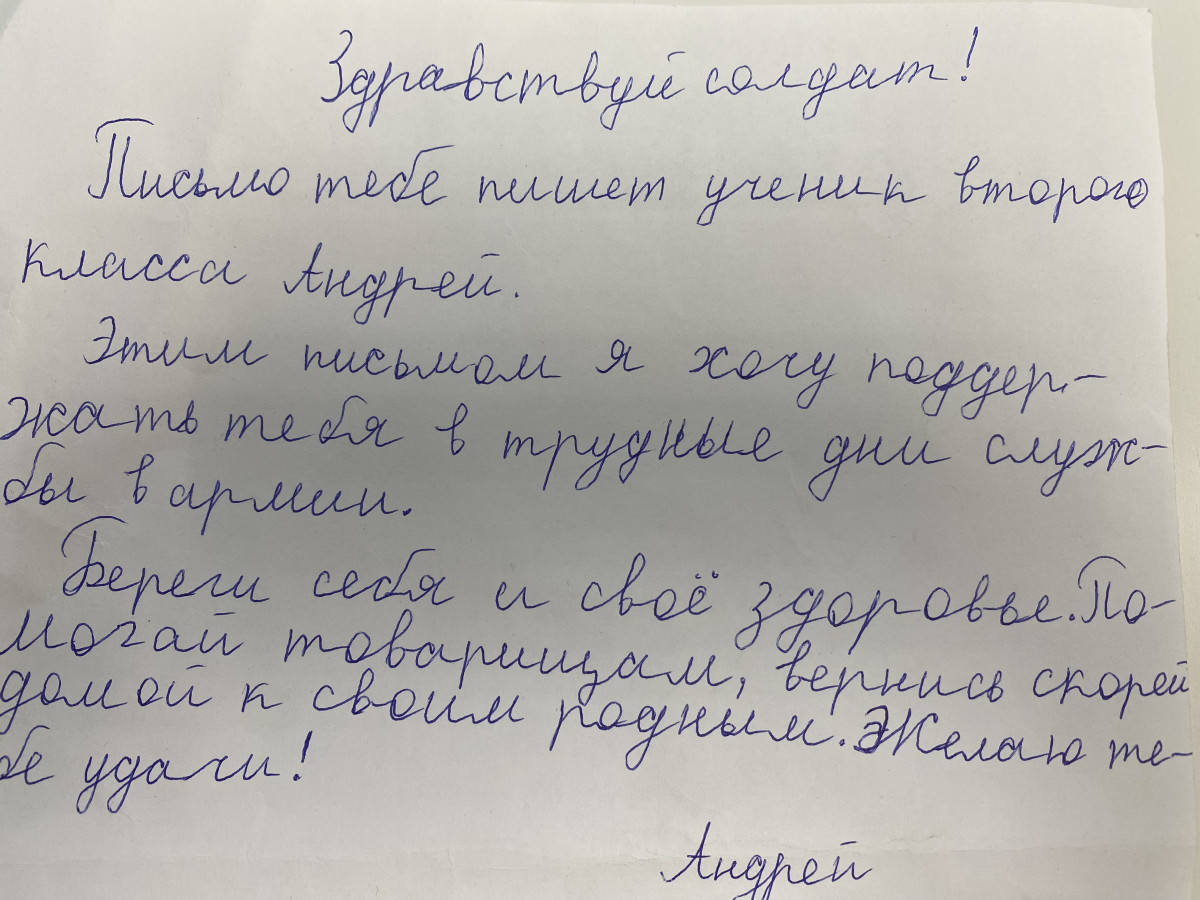 Здравствуй солдат!
Письмо тебе пишет ученик второго
класса Андрей.
Этим письмом я хочу поддер-
жать тебя в трудные дни служ-
бы в армии.
Береги себя и своё здоровье. По-
могай товарищам, вернись скорей
домой к своим родным. Желаю те-
бе удачи!
Андрей